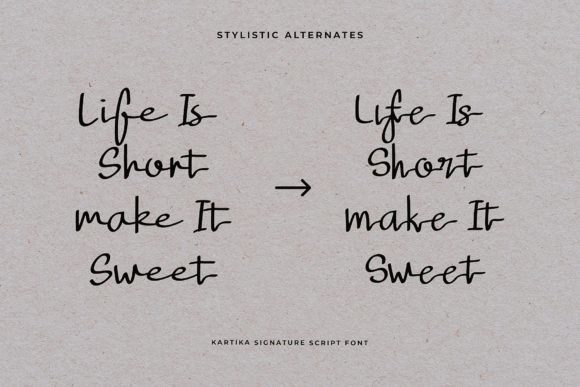 STYLISTIC ALTERNATES
Life Is
Short
make It
Sweet
→
Life Is
Short
make It
Sweet
KARTIKA SIGNATURE SCRIPT FONT